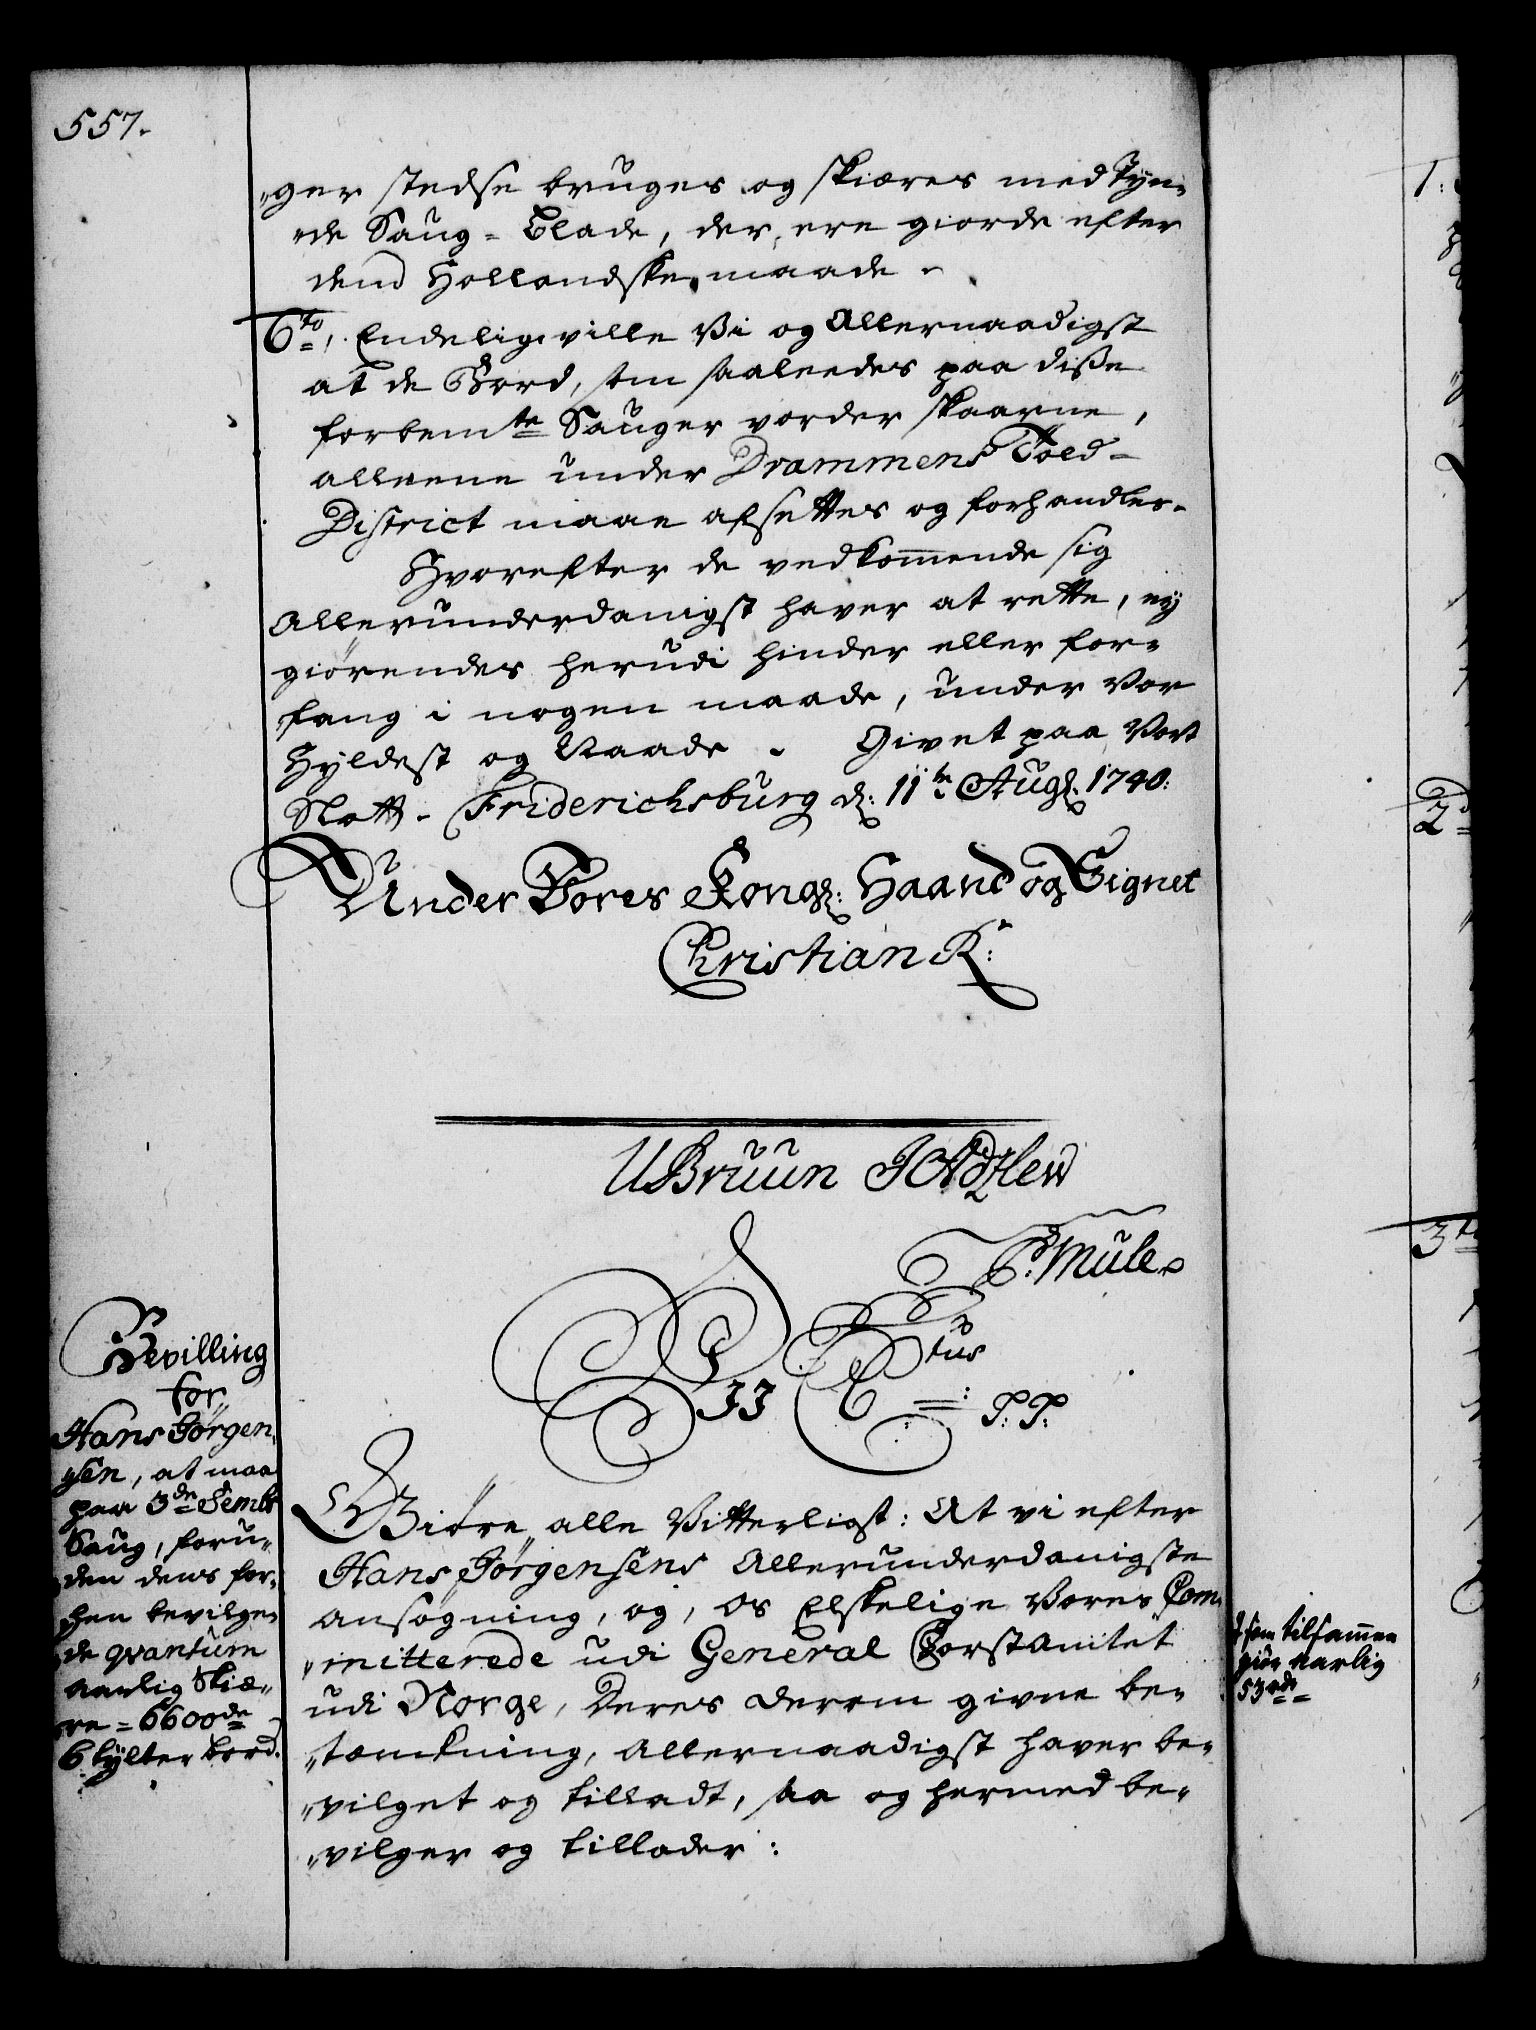 557.
"ger stedse bruges og skiæres med Tyn"
"de Saug-Blade, der, ere giorde efter
dend Hollandske maade.
6to, Endelig ville Vi og Allernaadigst
at de Bord, som saaleedes paa disse
forbemte Sauger vorder skaarne,
alleene under Drammens Told-
District maae afsettes og forhandles.
Hvorefter de vedkommende sig
Allerunderdanigst haver at rette, ey
giörendes herudi hinder eller for"
fang i nogen maade, under Vor
Hyldest og Naade. Givet paa Vort
Slott Friderichsburg d: 11te Aug: 1740.
Under Vores Kong: Haand og Signet
Christian R:
U Bruun
P: Mule
C tus
T: T:
Bevilling
for
Hans Jörgen"
"sen, at maa
paa 3de Sembs
Saug, foru"
den dens for"
hen bevilge"
de qvantum
aarlig Skiæ"
re = 6600de
6 tylter bord.
Giöre alle Vitterligt: At vi efter
Hans Jörgensens Allerunderdanigste
ansögning, og, Os Elskelige Vores Com"
"mitterede udi General Forstamtet
udi Norge, Deres derom givne be"
"tænkning, Allernaadigst haver be"
"vilget og tilladt, saa og hermed be"
"vilger og tillader:
som tilsammen
giör aarlig
1:
2d
3ti